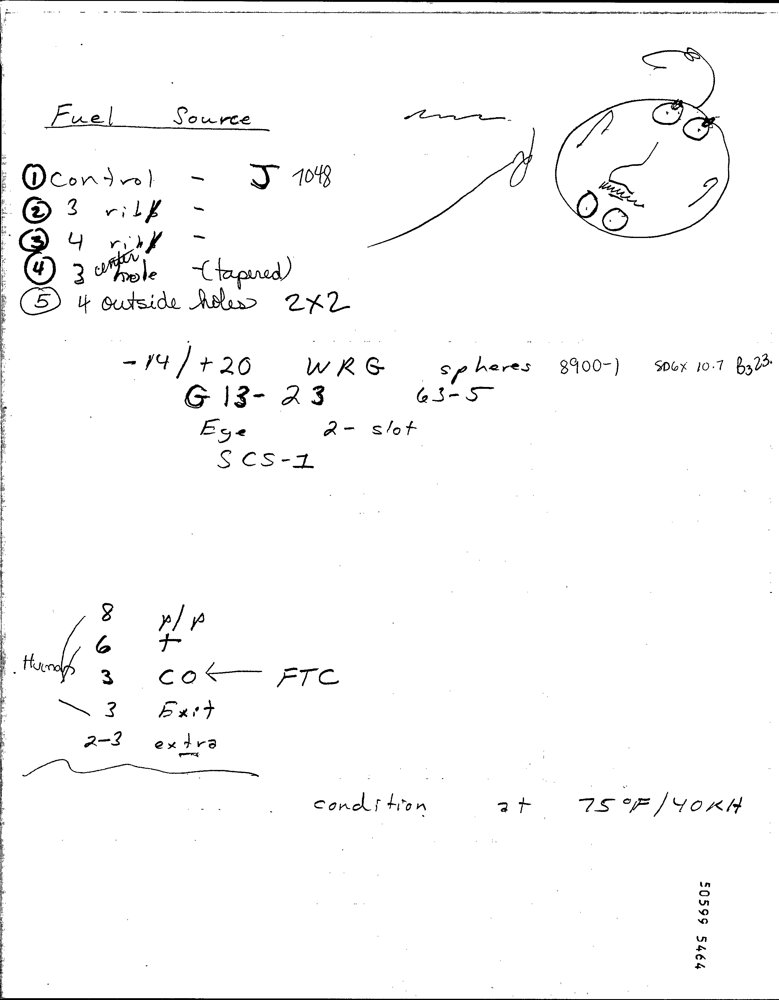 Fuel Source
① Control - J 1048
② 3 rib -
③ 4 rib -
④ 3 center hole - (tapered)
⑤ 4 outside holes 2x2
-14/+20 WRG spheres 8900-1 SD6X 10.7 B323.
G 13-23 63-5
Ege 2-slot
SCS-1
8 p/p
6 +
3 CO ← FTC
3 Exit
2-3 extra
condition at 75°F/40RH
50599 5464